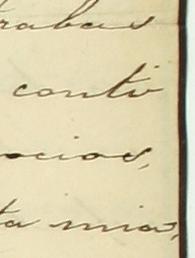 trabas
conti
ocios,
ta mia,